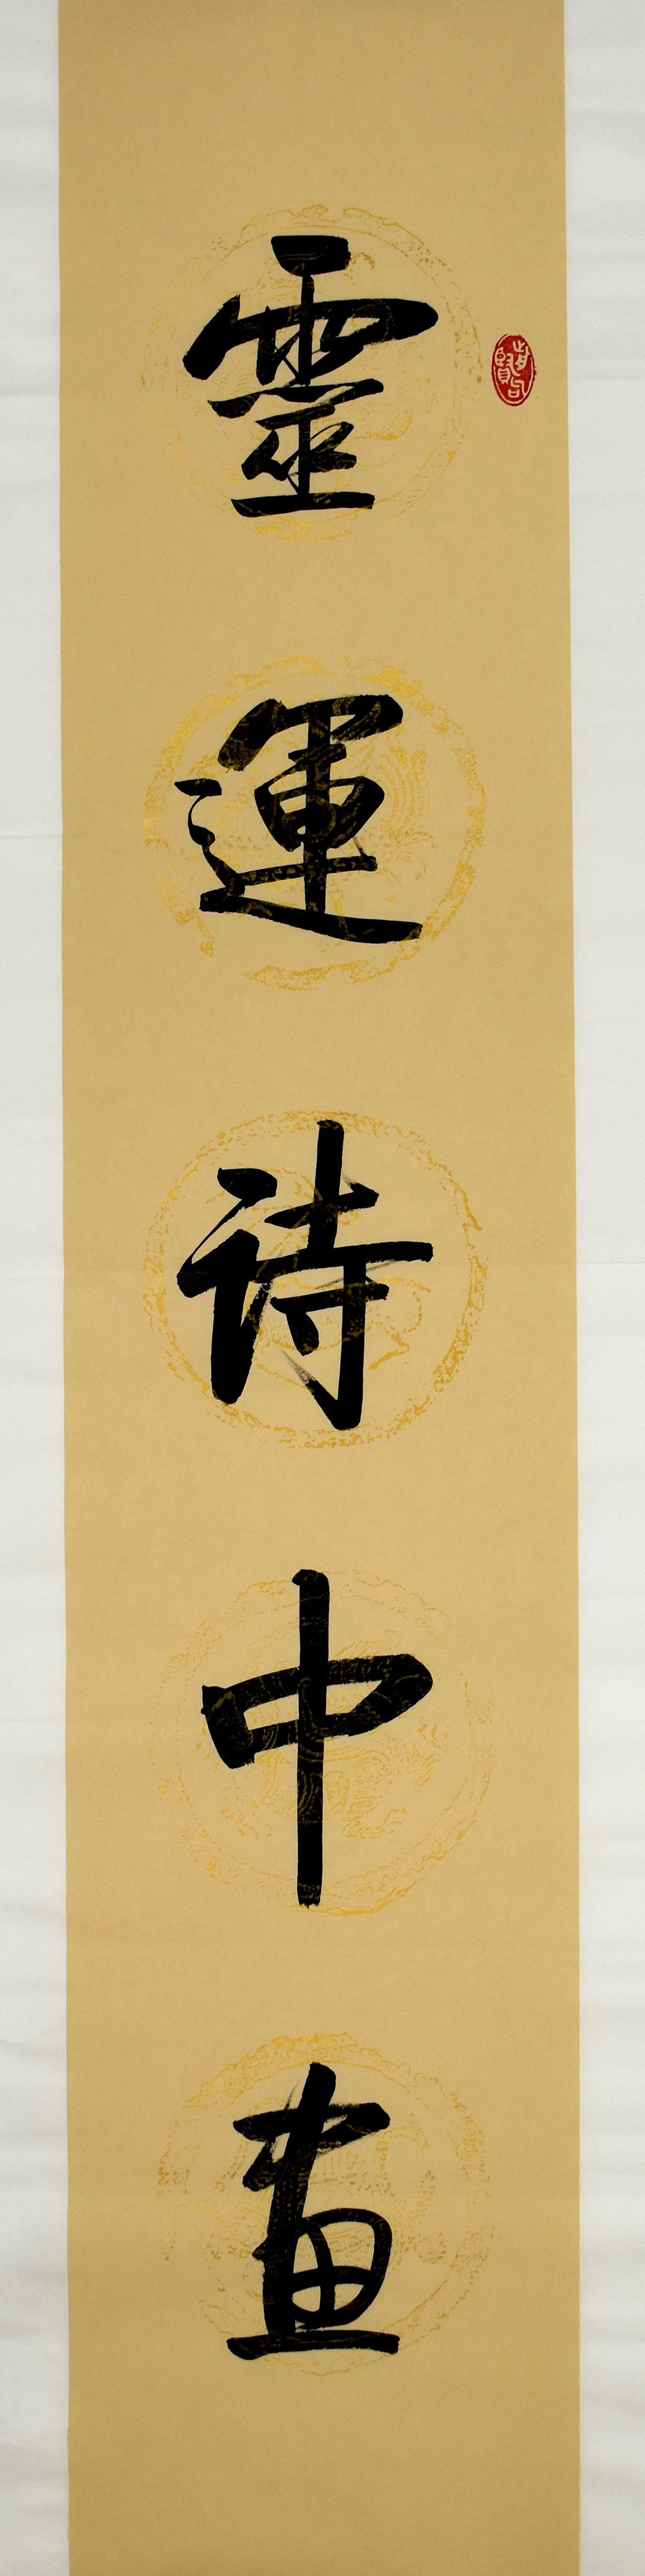 靈運诗中畫